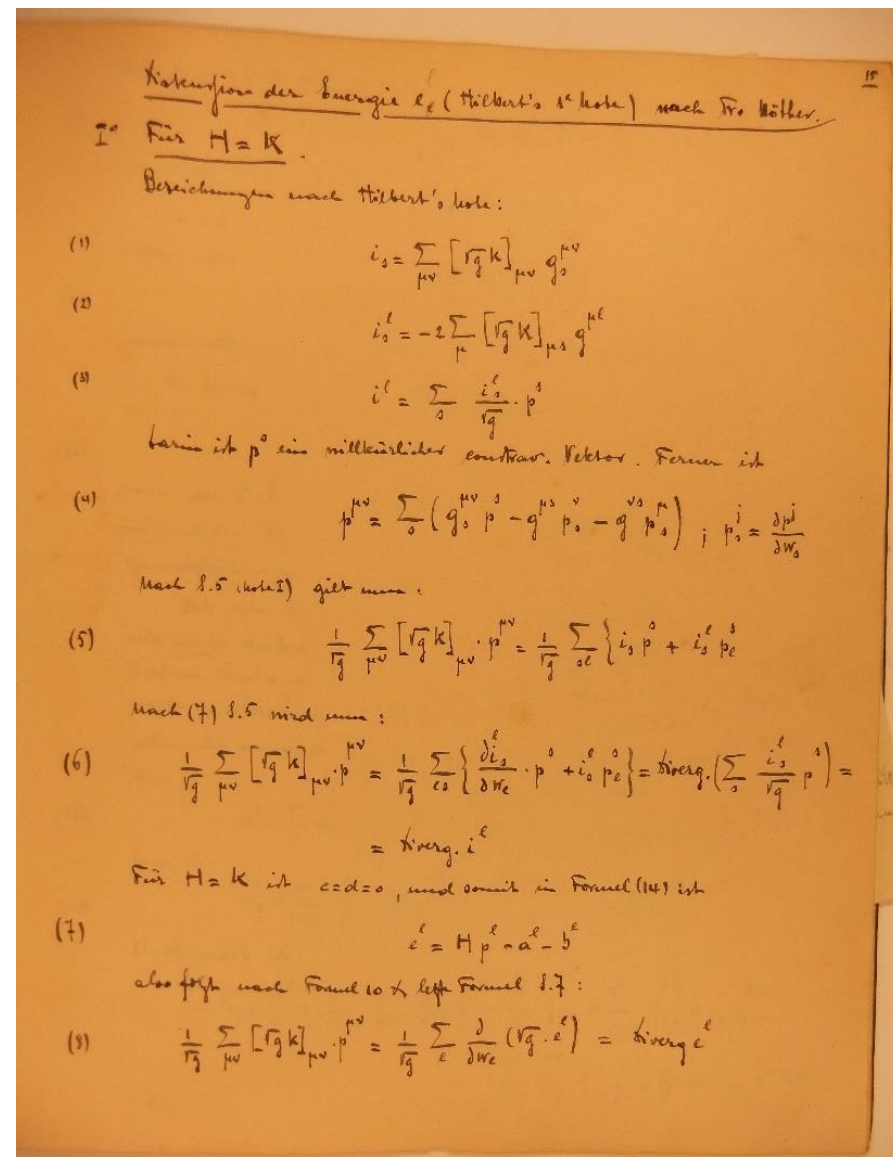 15
Diskussion der Energie eₑ (Hilbert's 1ᵉ Note) nach Frl. Nöther.
I° Für H = K.
Bezeichnungen nach Hilbert's Note:
(1) i_s = ∑_{μν} [√g K]_{μν} g_s^{μν}
(2) i_s^l = -2 ∑_μ [√g K]_{μs} g^{μl}
(3) i^l = ∑_s i_s^l/√g · p^s
Darin ist p^s ein willkürlicher contrav. Vektor. Ferner ist
(4) p^{μν} = ∑_s (g_s^{μν} p^s - g^{μs} p_s^ν - g^{νs} p_s^μ) ; p_s^j = ∂p^j/∂w_s
Nach S.5 (Note I) gilt nun:
(5) 1/√g ∑_{μν} [√g K]_{μν} · p^{μν} = 1/√g ∑_{sl} { i_s p^s + i_s^l p_l^s
Nach (7) S.5 wird nun:
(6) 1/√g ∑_{μν} [√g K]_{μν} · p^{μν} = 1/√g ∑_{ls} { ∂i_s^l/∂w_l · p^s + i_s^l p_l^s } = Diverg. (∑_s i_s^l/√g p^s) =
= Diverg. i^l
Für H = K ist c=d=0, und somit in Formel (14) ist
(7) e^l = H p^l - a^l - b^l
also folgt nach Formel 10 & letzte Formel S.7:
(8) 1/√g ∑_{μν} [√g K]_{μν} · p^{μν} = 1/√g ∑_l ∂/∂w_l (√g · e^l) = Diverg e^l